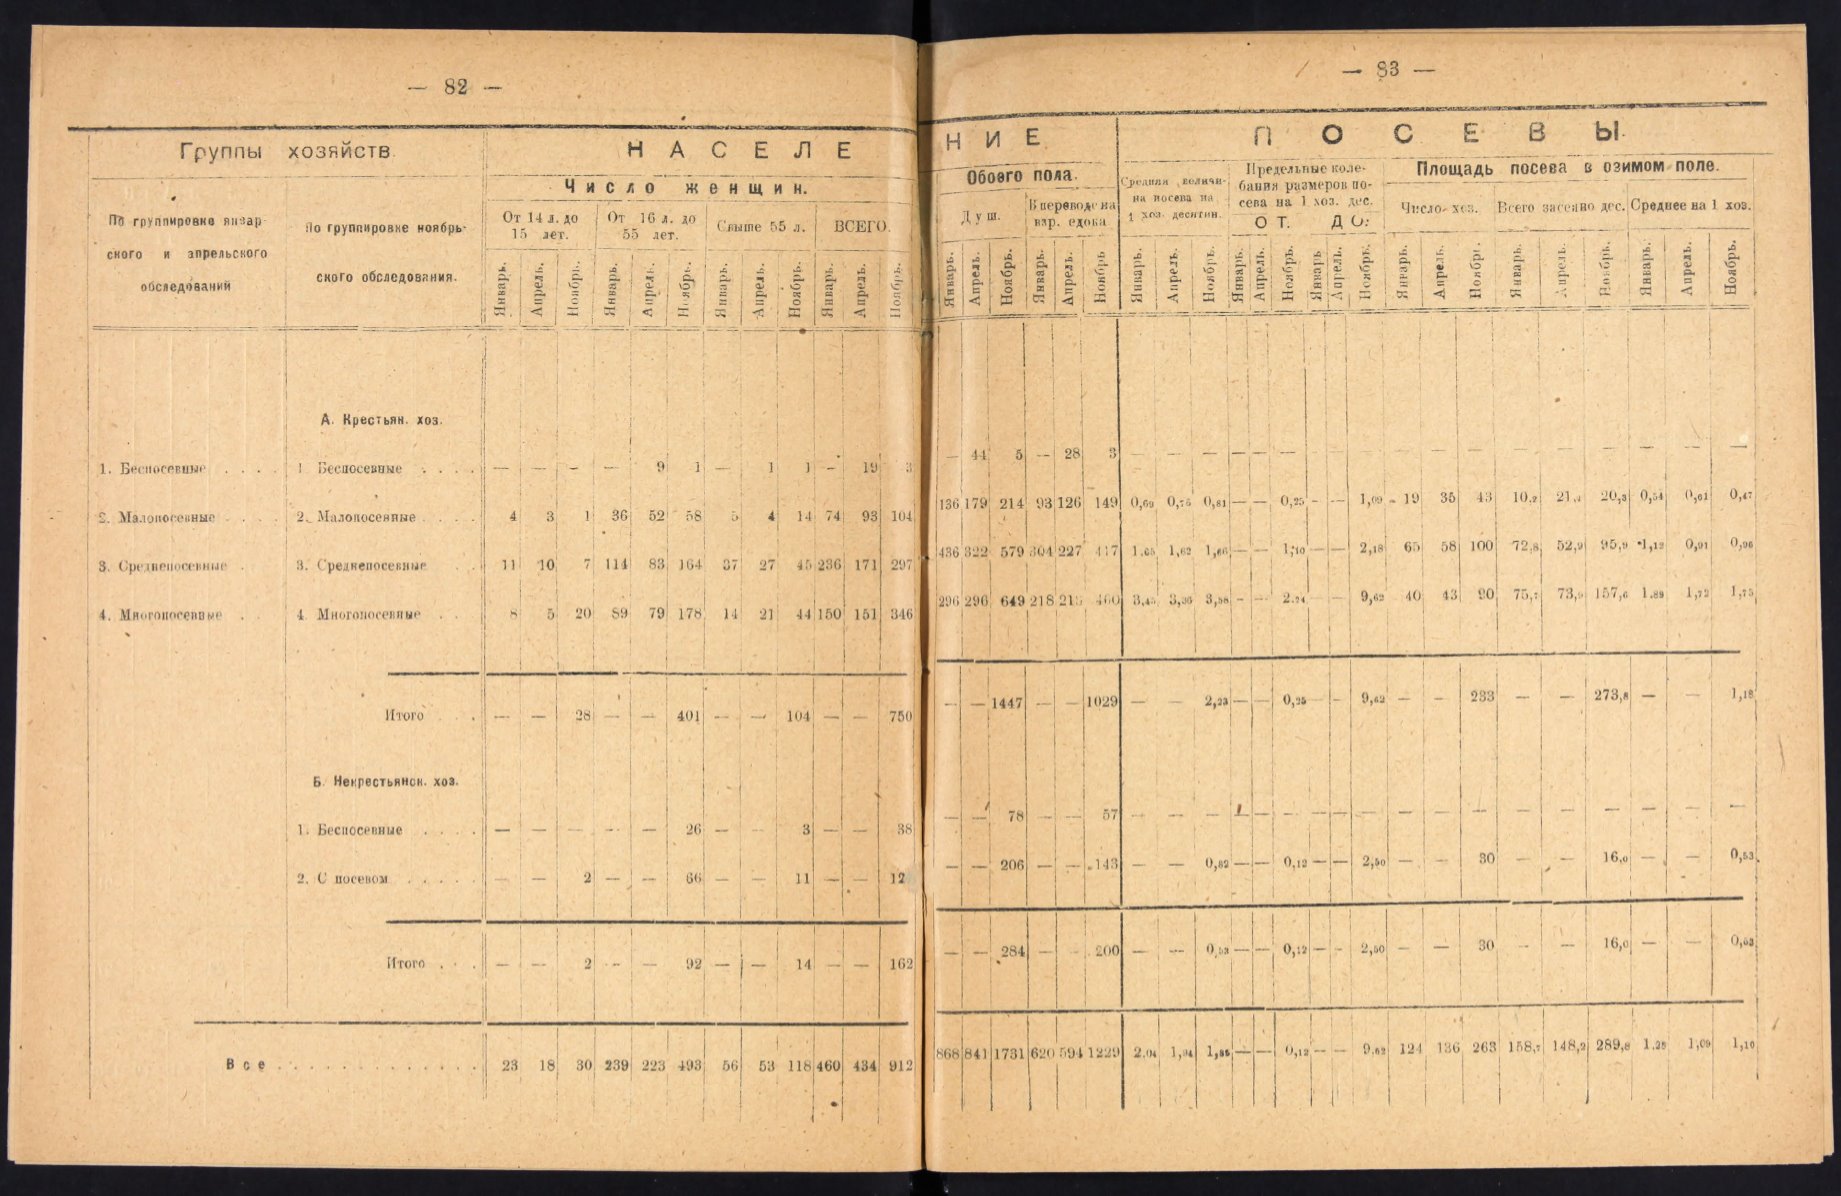 — 82 —
Группы хозяйств.
НАСЕЛЕ
Число женщин.
По группировке январ-
ского и апрельского
обследований
По группировке ноябрь-
ского обследования.
От 14 л. до
15 лет.
От 16 л. до
55 лет.
Свыше 55 л.
ВСЕГО.
Январь. Апрель. Ноябрь. Январь. Апрель. Ноябрь. Январь. Апрель. Ноябрь. Январь. Апрель. Ноябрь.
А. Крестьян. хоз.
1. Беспосевные . . . . 1 Беспосевные . . . . — — — — 9 1 — 1 1 — 19 3
2. Малопосевные . . . . 2. Малопосевные . . . . 4 3 1 36 52 58 5 4 14 74 93 104
3. Среднепосевные . 3. Среднепосевные . . 11 10 7 114 83 164 37 27 45 236 171 297
4. Многопосевные . . 4. Многопосевные . . 8 5 20 89 79 178 14 21 44 150 151 346
Итого . . . — — 28 — — 401 — — 104 — — 750
Б. Некрестьянск. хоз.
1. Беспосевные . . . . — — — — — 26 — — 3 — — 38
2. С посевом . . . . . — — 2 — — 66 — — 11 — — 12
Итого . . . — — 2 — — 92 — — 14 — — 162
Все . . . . . . . . . . . . . 23 18 30 239 223 493 56 53 118 460 434 912
— 83 —
НИЕ
ПОСЕВЫ.
Обоего пола.
Душ.
В переводе на
взр. едока
Средняя величи-
на посева на
1 хоз. десятин.
Предельные коле-
бания размеров по-
сева на 1 хоз. дес.
ОТ. ДО:
Площадь посева в озимом поле.
Число хоз. Всего засеяно дес. Среднее на 1 хоз.
Январь. Апрель. Ноябрь. Январь. Апрель. Ноябрь Январь. Апрель. Ноябрь. Январь. Апрель. Ноябрь. Январь Апрель. Ноябрь. Январь. Апрель. Ноябрь. Январь. Апрель. Ноябрь. Январь. Апрель. Ноябрь.
— 44 5 — 28 3 — — — — — — — — — — — — — — — — — —
136 179 214 93 126 149 0,69 0,75 0,81 — — 0,25 — — 1,09 19 35 43 10,2 21,4 20,3 0,54 0,61 0,47
436 322 579 304 227 417 1,65 1,62 1,66 — — 1,10 — — 2,18 65 58 100 72,8 52,9 95,9 1,12 0,91 0,96
296 296 649 218 213 460 3,45 3,36 3,58 — — 2,24 — — 9,62 40 43 90 75,7 73,9 157,6 1,89 1,72 1,75
— — 1447 — — 1029 — — 2,23 — — 0,25 — — 9,62 — — 233 — — 273,8 — — 1,18
— — 78 — — 57 — — — — — — — — — — — — — — — — — —
— — 206 — — 143 — — 0,82 — — 0,12 — — 2,50 — — 30 — — 16,0 — — 0,53
— — 284 — — 200 — — 0,53 — — 0,12 — — 2,50 — — 30 — — 16,0 — — 0,53
868 841 1731 620 594 1229 2,04 1,94 1,85 — — 0,12 — — 9,62 124 136 263 158,7 148,2 289,8 1,28 1,09 1,10